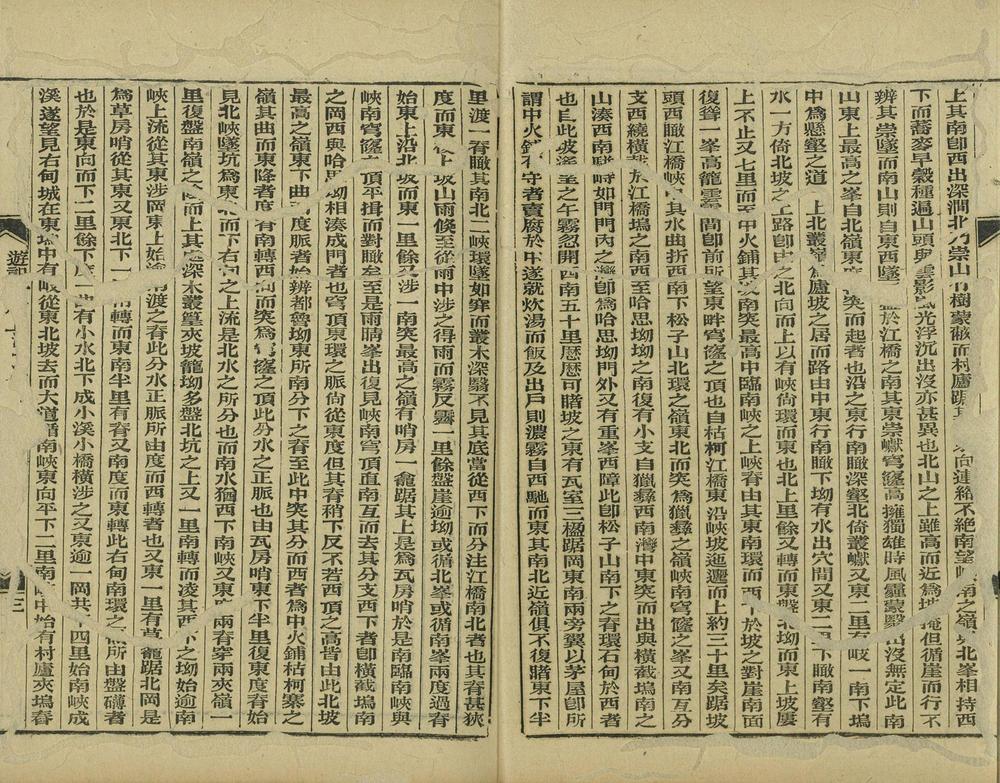 上其南卽西出深澗北乃崇山竹樹蒙蔽而村廬踞其 向連絡不絶南望峽南之嶺與北峯相持西
下而蕎麥早穀種遍山頭與雲影嵐光浮沉出沒亦甚異也北山之上雖高而近爲坡掩但循崖而行不
辨其崇墜而南山則自東西墜 於江橋之南其東崇巘穹窿高擁獨雄時風霾蒙翳出沒無定此南
山東上最高之峯自北嶺東度 突而起者也沿之東行南瞰深壑北倚叢巘又東二里有岐一南下塢
中爲懸壑之道 上北叢嶺爲廬坡之居而路由中東行南瞰下坳有水出穴間又東二里下瞰南壑有
水一方倚北坡之上路卽由之北向而上以有峽尙環而東也北上里餘又轉而東盤北坳而東上坡屢
上不止又七里而至中火鋪其坡南突最高中臨南峽之上峽脊由其東南環而西下於坡之對崖南面
復聳一峯高籠雲霧間卽前所望東畔穹窿之頂也自枯柯江橋東沿峽坡迤邐而上約三十里矣踞坡
頭西瞰江橋峽中其水曲折西南下松子山北環之嶺東北而突爲獵彝之嶺峽南穹窿之峯又南亙分
支西繞橫截於江橋塢之南西至哈思坳坳之南復有小支自獵彝西南灣中東突而出與橫截塢南之
山湊西南駢峙如門門內之灣卽爲哈思坳門外又有重峯西障此卽松子山南下之脊環石甸於西者
也自此坡遂至之午霧忽開西南五十里歷歷可睹坡之東有瓦室三楹踞岡東南兩旁翼以茅屋卽所
謂中火鋪有守者賣腐於中遂就炊湯而飯及出戶則濃霧自西馳而東其南北近嶺俱不復睹東下半
里渡一脊瞰其南北二峽環墜如穽而叢木深翳不見其底當從西下而分注江橋南北者也其脊甚狹
度而東復上坡山雨倏至從雨中涉之得雨而霧反霽一里餘盤崖逾坳或循北峯或循南峯兩度過脊
始東上沿北坡而東一里餘又涉一南突最高之嶺有哨房一龕踞其上是爲瓦房哨於是南臨南峽與
峽南穹窿之頂平揖而對瞰矣至是雨晴峯出復見峽南穹頂直南亙而去其分支西下者卽橫截塢南
之岡西與哈思坳相湊成門者也穹頂東環之脈尙從東度但其脊稍下反不若西頂之高皆由此北坡
最高之嶺東下曲 度脈者始辨都魯坳東所南分下之脊至此中突其分而西者爲中火鋪枯柯寨之
嶺其曲而東降者度 脊南轉西向而突爲穹窿之頂此分水之正脈也由瓦房哨東下半里復東度脊始
見北峽墜坑爲東北而下右甸之上流是北水之所分也而南水猶西下南峽又東度兩脊穿兩夾嶺一
里復盤南嶺之陰而上其處深木叢篁夾坡籠坳多盤北坑之上又一里南轉而凌其西下之坳始逾南
峽上流從其東涉岡東上始逾南渡之脊此分水正脈所由度而西轉者也又東一里有草房一龕踞北岡是
爲草房哨從其東又東北下一里南轉而東南半里有脊又南度而東轉此右甸南環之嶺所由盤礴者
也於是東向而下二里餘下度一曲有小水北下成小溪小橋橫涉之又東逾一岡共下四里始南峽成
溪遂望見右甸城在東塢中有岐從東北坡去而大道循南峽東向平下二里南峽中始有村廬夾塢舂
遊記
三